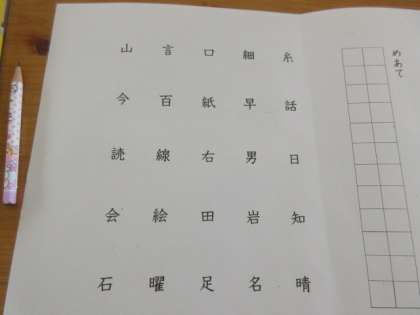 めあて
山 言 口 細 糸
今 百 紙 早 話
読 線 右 男 日
会 絵 田 岩 知
石 曜 足 名 晴